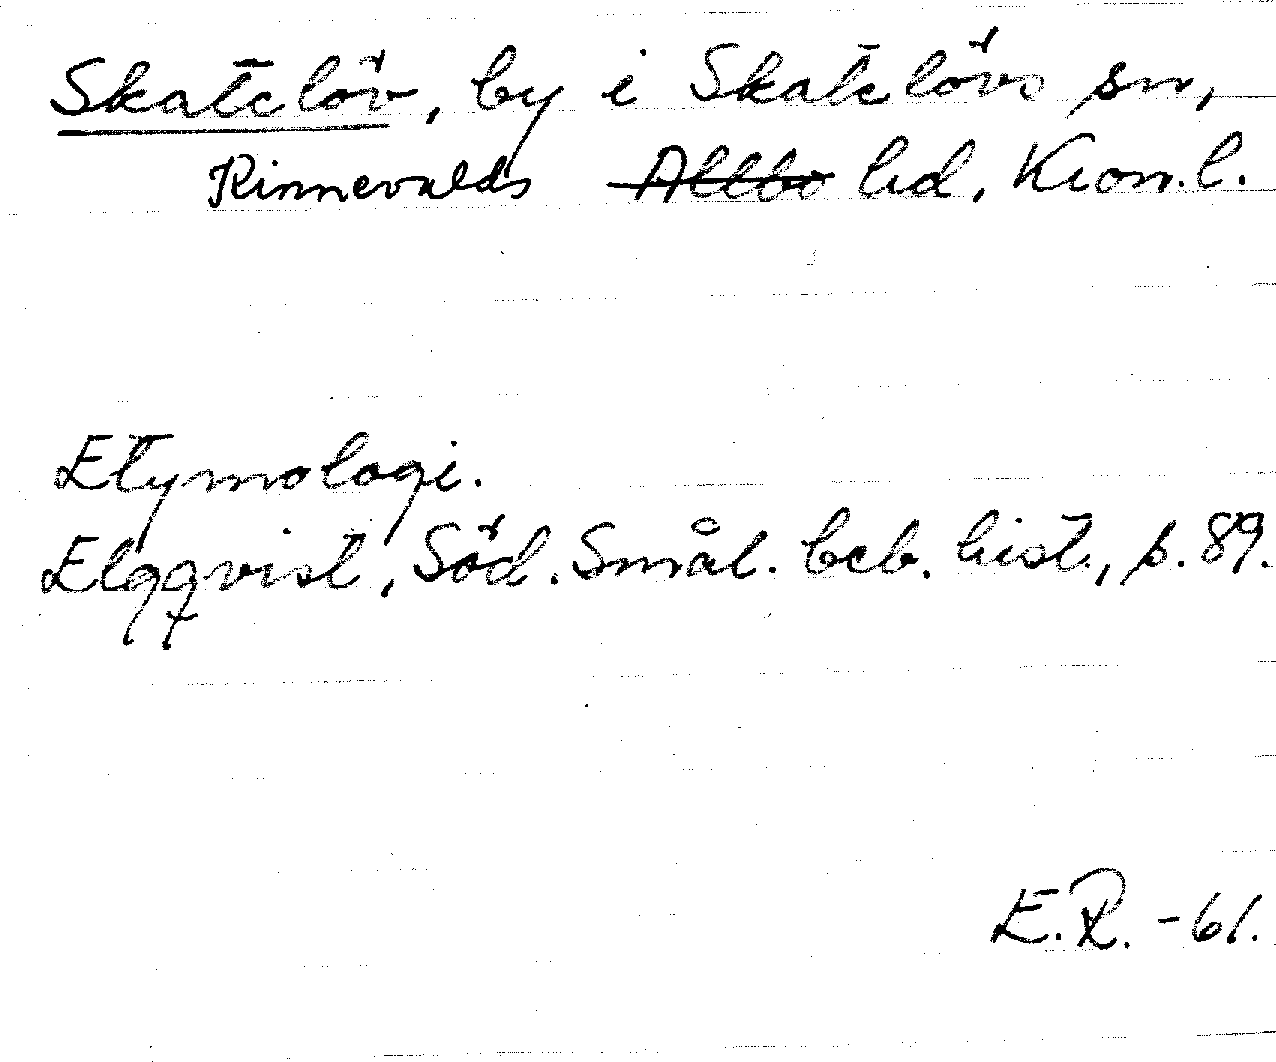 Skatelöv, by i Skatelövs sn,
Kinnevalds Allbo hd, Kron. l.
Etymologi.
Elgqvist, Söd. Smål. beb. hist., p. 89.
E.R. -61.